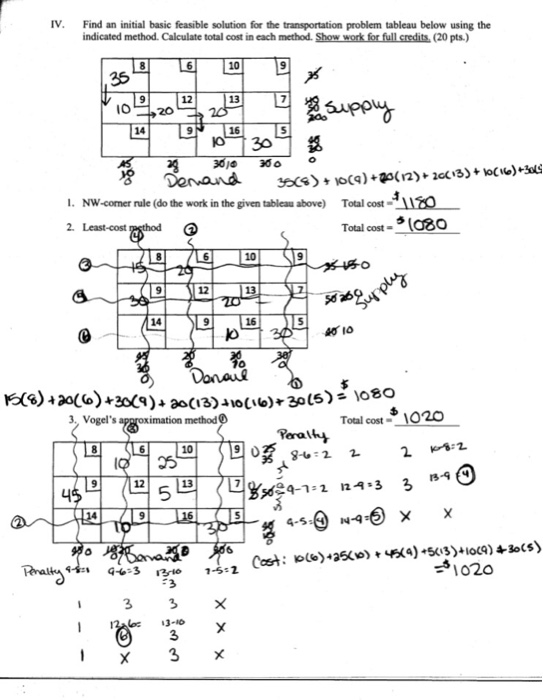 IV. Find an initial basic feasible solution for the transportation problem tableau below using the
indicated method. Calculate total cost in each method. Show work for full credits. (20 pts.)
8 6 10 9
35
9 12 13 7
10 20 20 Supply
14 9 16 5
10 30
Demand
35(8) + 10(9) + 20(12) + 20(13) + 10(16) + 30(5
1. NW-corner rule (do the work in the given tableau above) Total cost = $1180
2. Least-cost method Total cost = $1080
8 6 10 9
15 20
9 12 13 7
30 20 Supply
14 9 16 5
10 30
15(8) + 20(6) + 30(9) + 20(13) + 10(16) + 30(5) = $1080
3. Vogel's approximation method Total cost = $1020
Penalty
8 6 10 9
10 25 8-6=2 2 2 10-8=2
9 12 13 7
45 5 9-7=2 12-9=3 3 13-9 4
14 9 16 5
10 30 9-5=4 14-9=5 X X
Demand
Penalty 9-8=1 9-6=3 13-10=3 7-5=2
Cost: 10(6) + 25(10) + 45(9) + 5(13) + 10(9) + 30(5)
= $1020
1 3 3 X
1 12-6=6 13-10 3 X
1 X 3 X